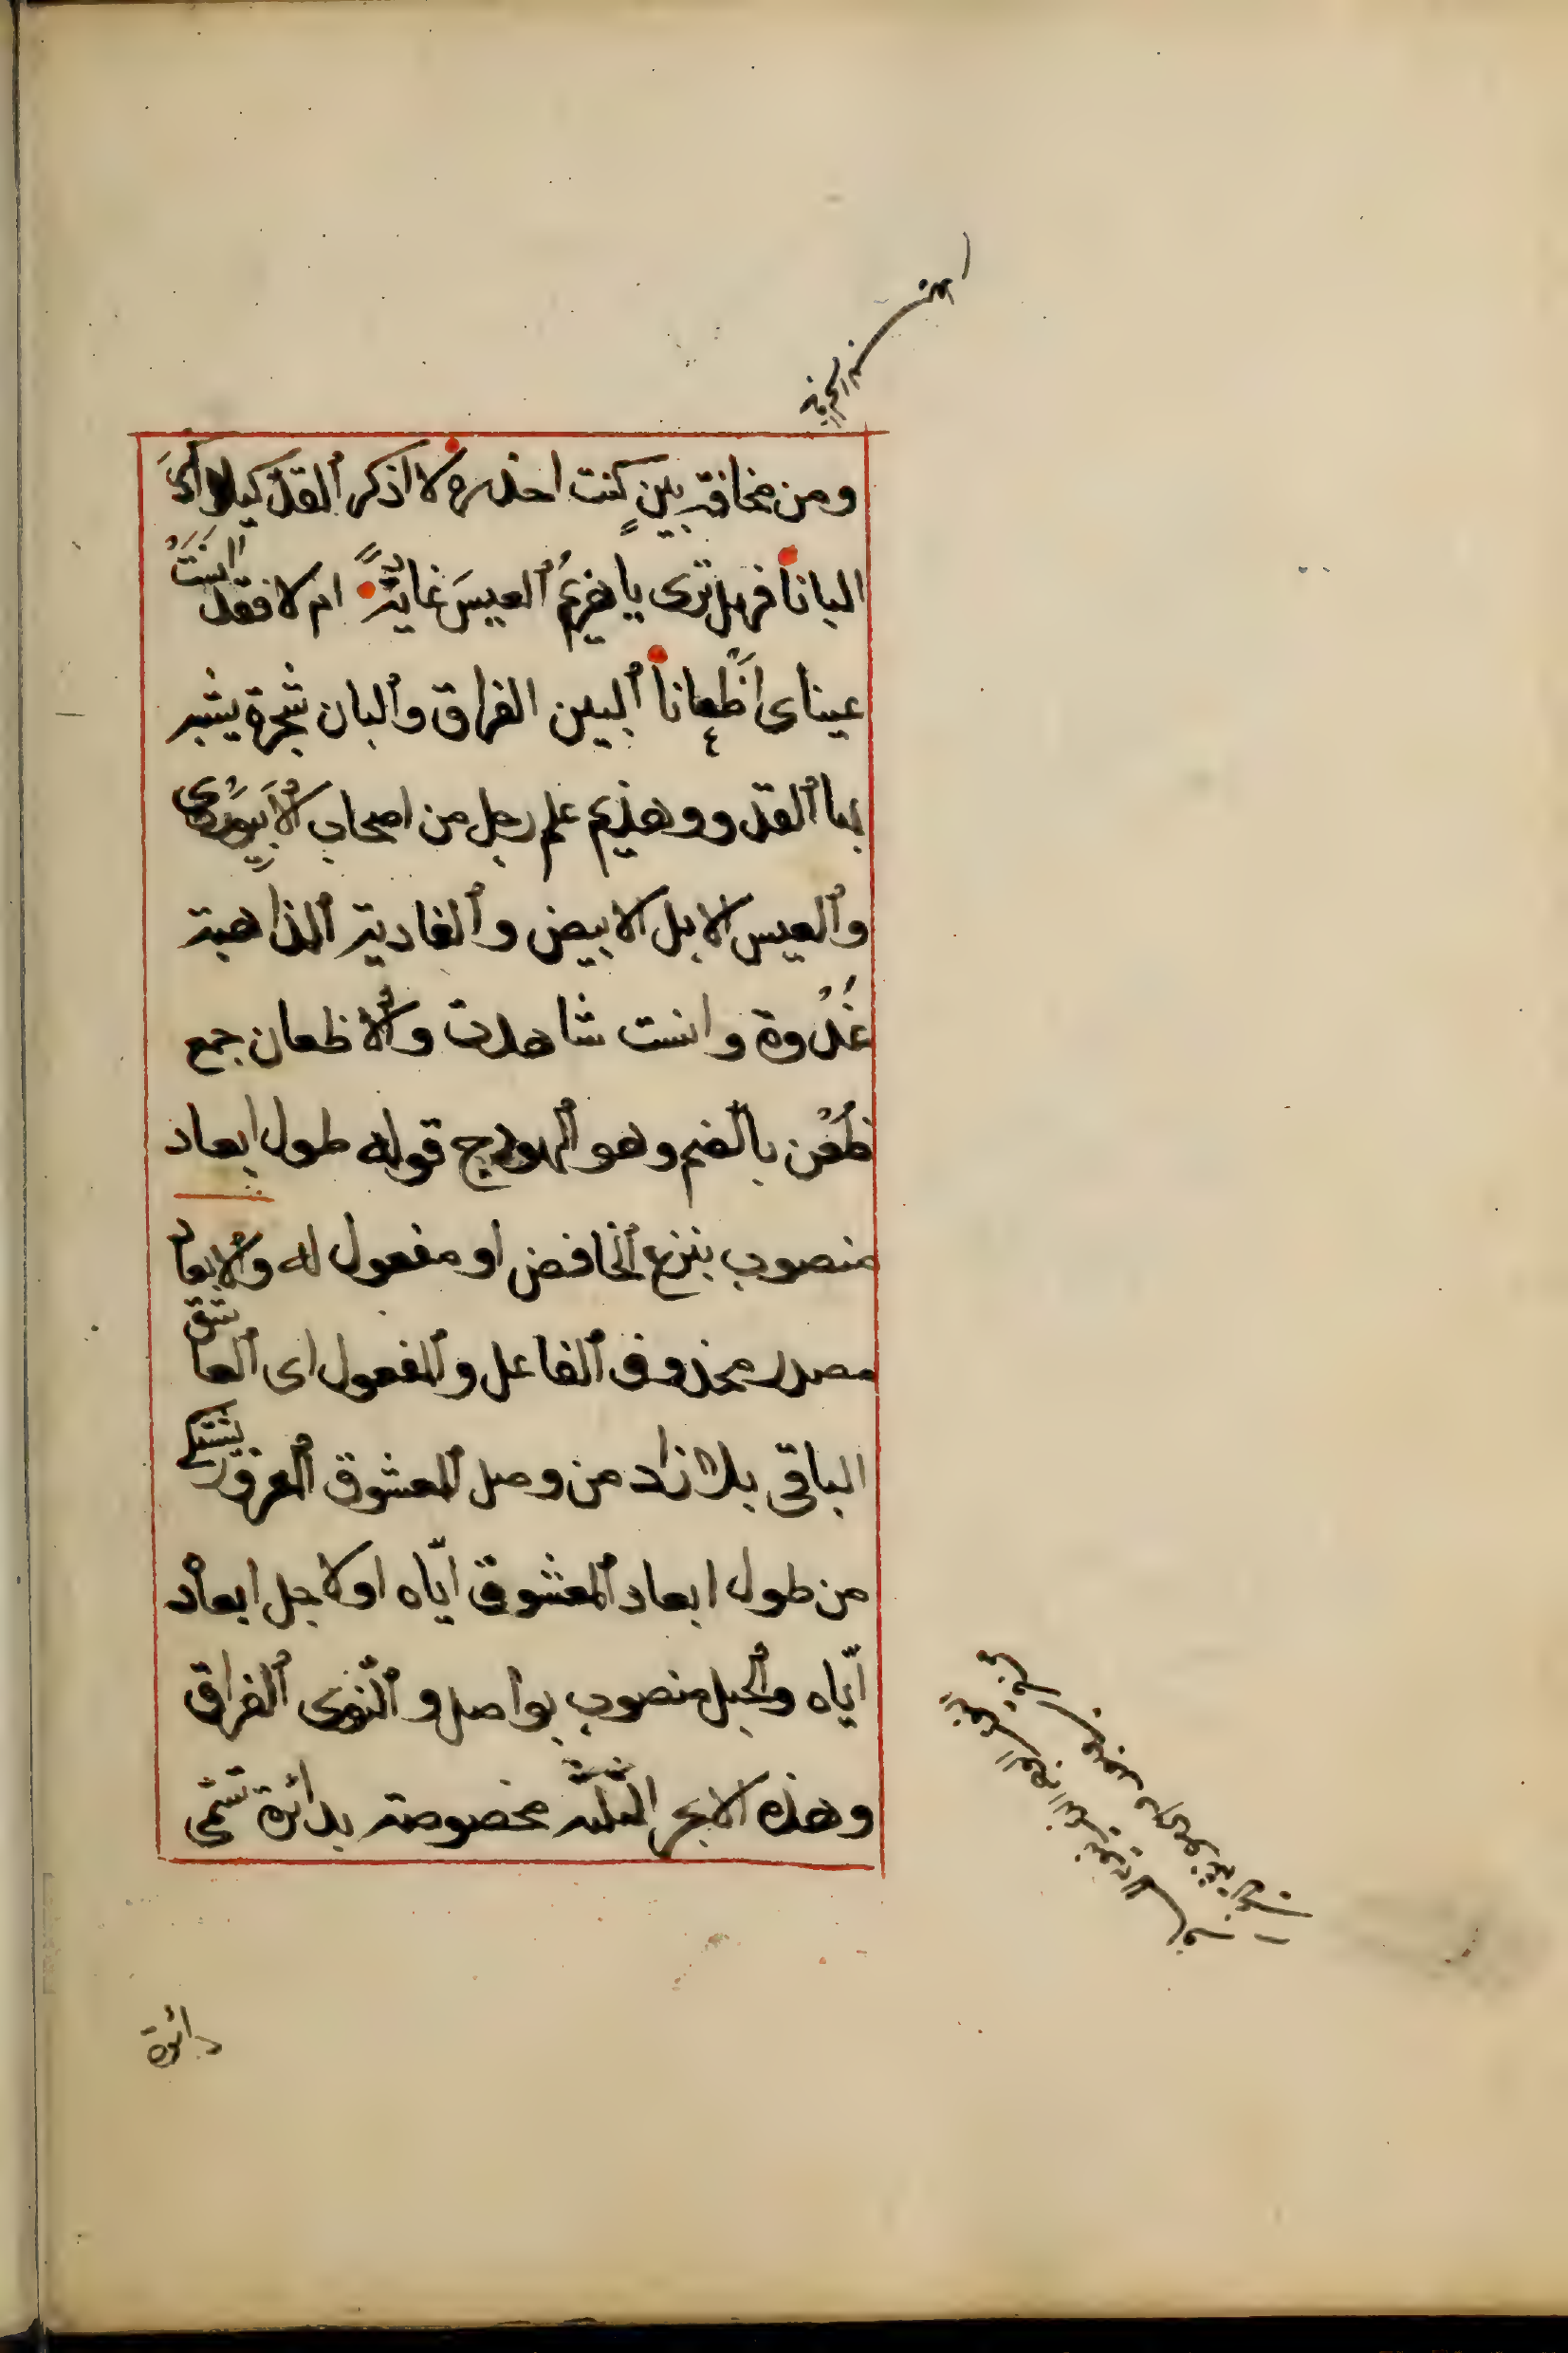 ومن مخافة بينٍ كنت احذره لا اذكر ٱلقدّ كيلا أذكُرَ
البانا فهل ترى يا هذيمُ ٱلعيسَ غاديةً ام لا فقد انسَتْ
عيناى اظعانا ٱلبين الفراق وٱلبان شجرة يشبه
بها ٱلقد ووهذيم علم رجل من اصحاب ٱلابيوردى
وٱلعيس الابل الابيض وٱلغادية ٱلذاهبة
غُدْوة وانست شاهدت وٱلاظعان جمع
ظُعْن بٱلضم وهو ٱلهودج قوله طول ابعاد
منصوب بنزع ٱلخافض او مفعول له وٱلابعاد
مصدر محذوف ٱلفاعل وٱلمفعول اى ٱلعاشق
الباقى بلا زاد من وصل ٱلمعشوق ٱلغرور يشتكى
من طول ابعاد ٱلمعشوق ايّاه او لاجل ابعاد
ايّاه وٱلحبل منصوب بواصل وٱلنّوى ٱلفراق
وهذه الابحر الثلثة مخصوصة بدائرة تسمّى
دائرة